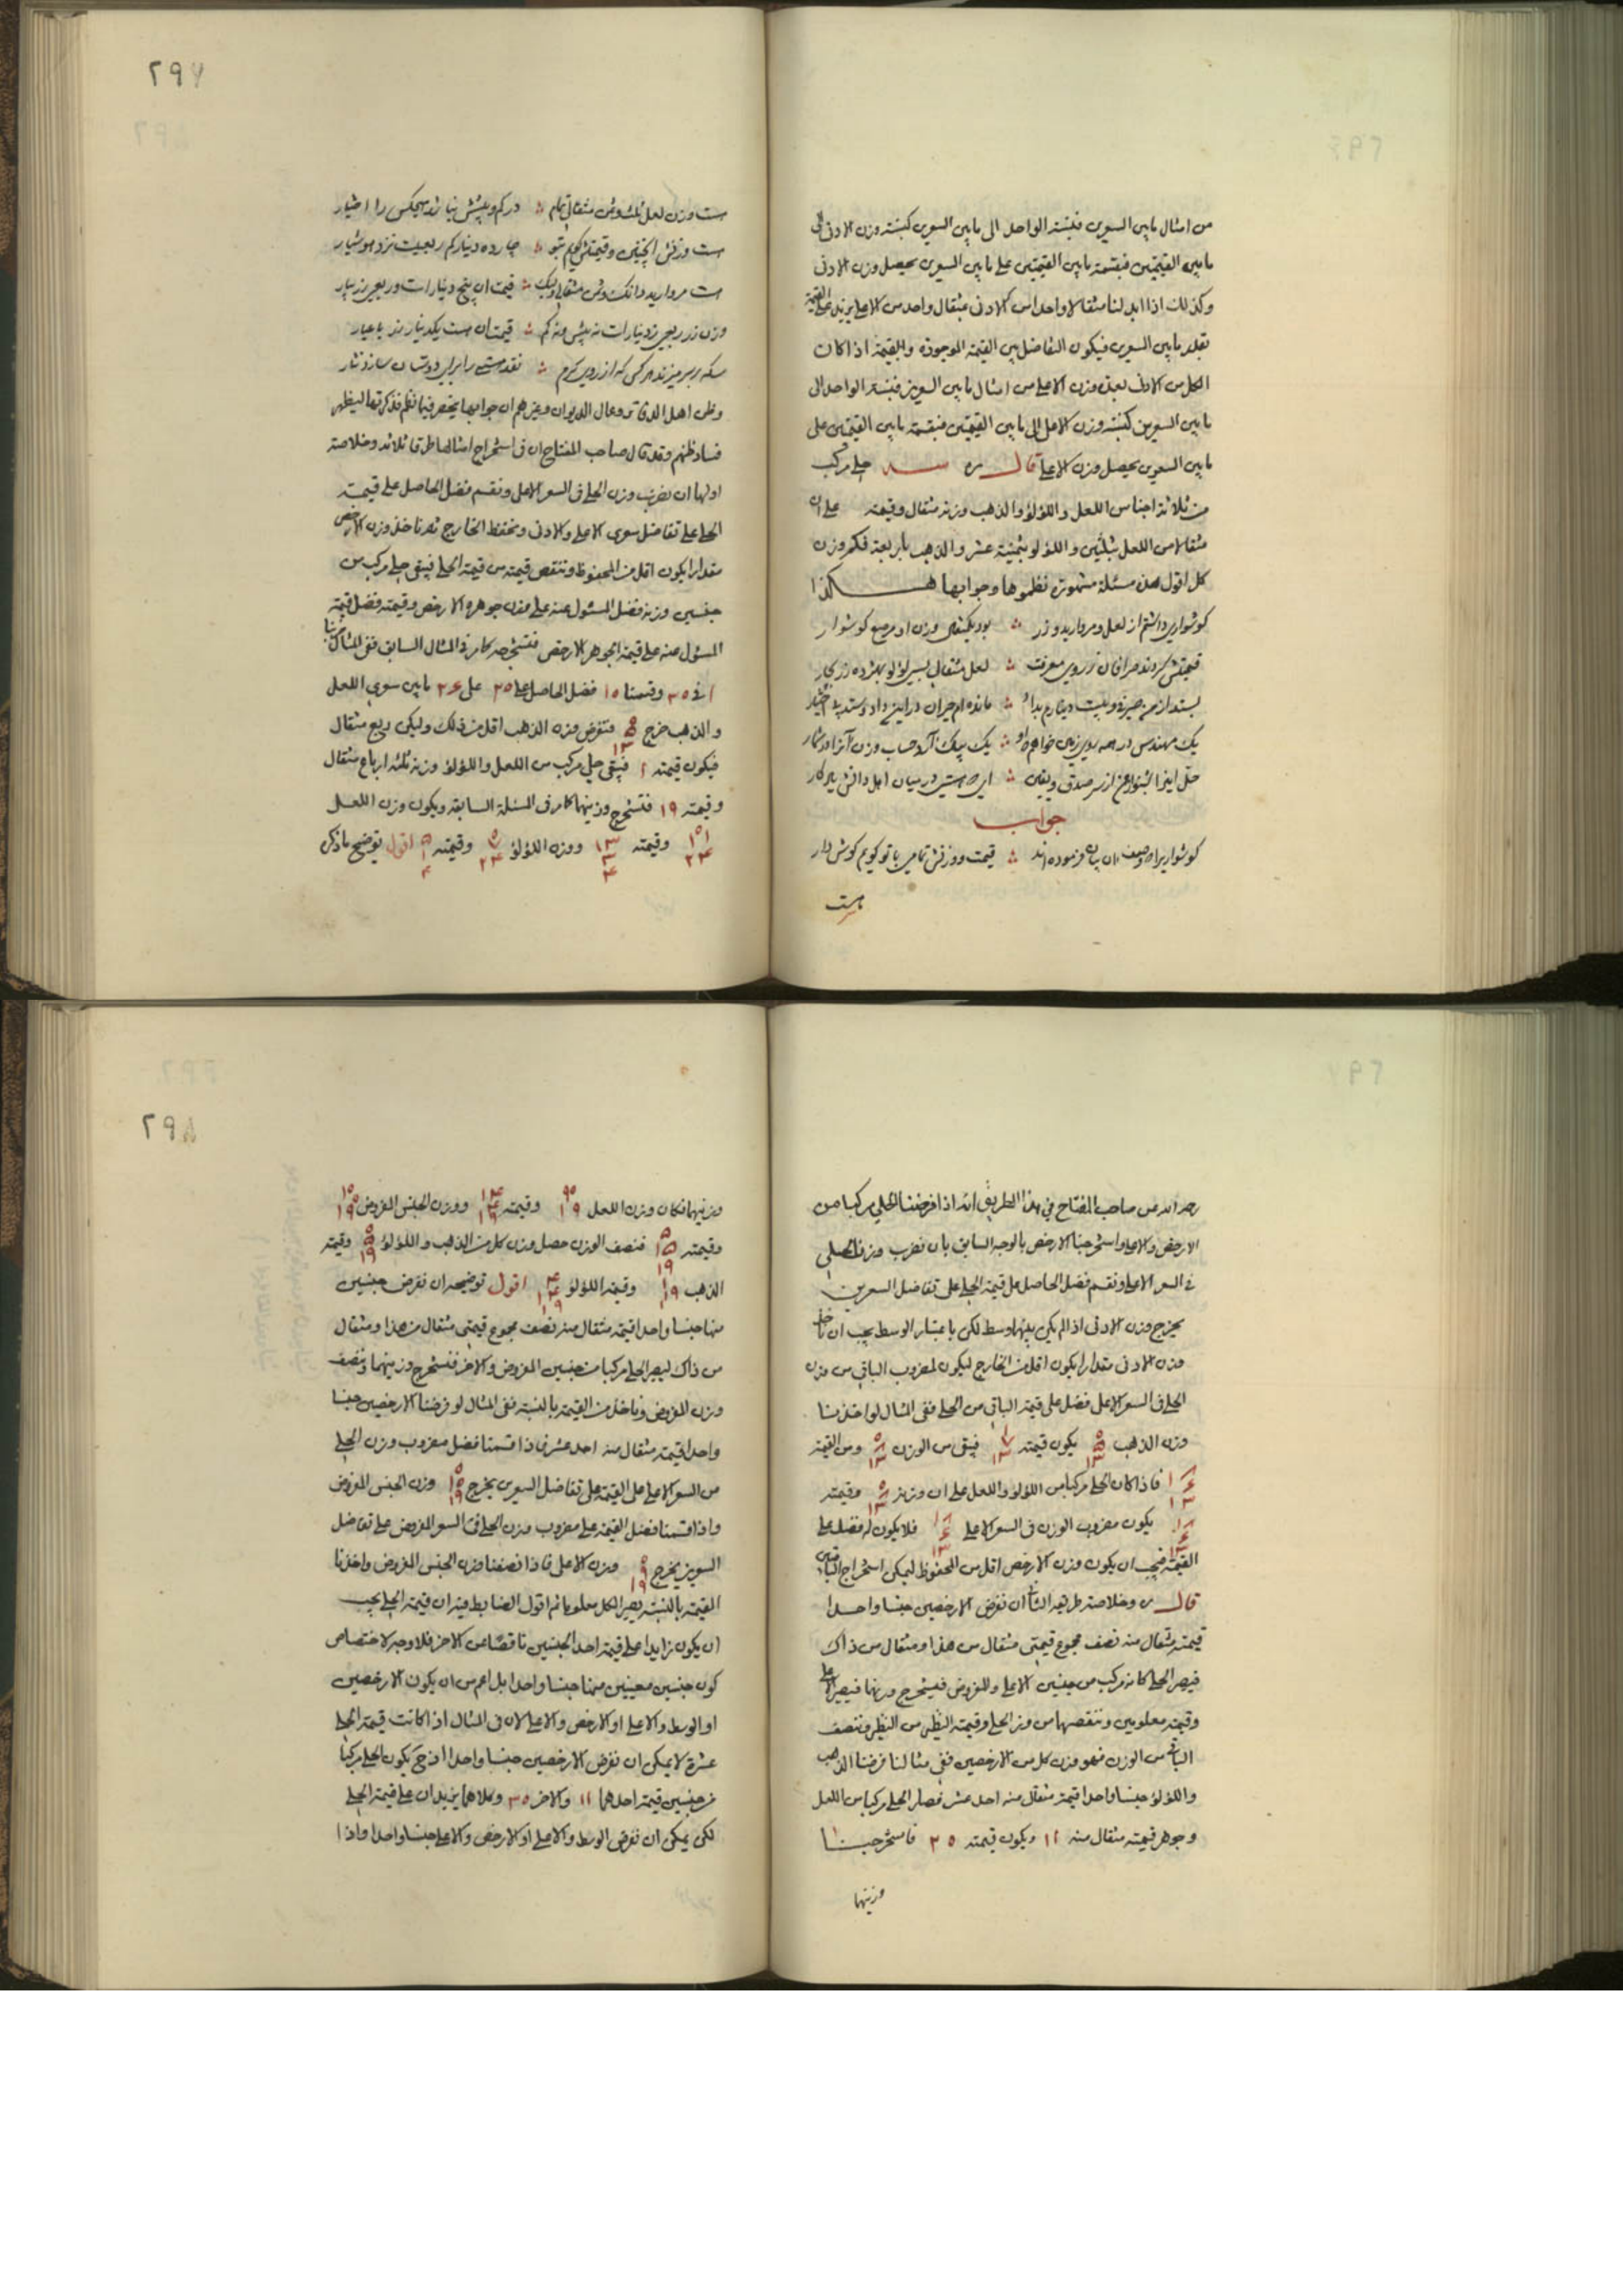 من امثال مابين السعرين فنسبة الواحد الى مابين السعرين كنسبة وزن الادنى الى
مابين القيمتين فبقسمة مابين القيمتين على مابين السعرين يحصل وزن الادنى
وكذلك اذا ابدلنا مثقالا واحدا من الادنى بمثقال واحد من الاعلى يزيد على القيمة
بقدر مابين السعرين فيكون التفاضل بين القيمة الموجودة والقيمة اذا كان
الكل من الادنى بعدة وزن الاعلى من امثال مابين السعرين فنسبة الواحد الى
مابين السعرين كنسبة وزن الاعلى الى مابين القيمتين فبقسمة مابين القيمتين على
مابين السعرين يحصل وزن الاعلى قال ره حلى مركب
من ثلاثة اجناس اللعل واللؤلؤ والذهب وزنه مثقال وقيمته على ان
مثقالا من اللعل بثلثين واللؤلؤ بثمنية عشر والذهب باربعة فكم وزن
كل اقول هذه مسئلة مشهورة نظموها وجوابها هكذا
كوشواري داشتم از لعل ومرواريد وزر بود يكمثقال وزن او مرصع كوشوار
قيمتش كردند صرافان ز روي معرفت لعل مثقالي بسي لؤلؤ بهژده زر چار
بستد از من وبيست دينارم بداد مانده ام حيران در اين داد وستد بي اختيار
يك مهندس در همه روي زمين خواهم كه او يك بيك آرد حساب وزن آنرا در شمار
حل اين از سر صدق ويقين در ميان اهل دانش يادكار
جواب
كوشواريرا كه وصف ان بيان فرموده اند قيمت ووزنش تمامي با تو كويم كوش دار
هست
٢٩٧
هست وزن لعل ثلث وثمن مثقالي تمام در كم وبيشش نباشد هيچكس را اختيار
هست وزنش اينچنين وقيمتش كويم بتو چارده دينار كم ربعيست نزد هوشيار
هست مرواريد دانك وثمن مثقالي وليك قيمت ان پنج دينارست وربعي زر بيار
وزن زر ربعي ز دينارست نه بيش ونه كم قيمت ان هست يكدينار زر با عيار
سكه بر سر ميزند هر كس كه از روي كرم نقد هستي را براي دوستان سازد نثار
وظن اهل الدفاتر وعمال الديوان وغيرهم ان جوابها ينحصر فيما نظم فذكرتها ليظهر
فساد ظنهم وقد قال صاحب المفتاح ان في استخراج امثالها طرقا ثلاثة وخلاصة
اولها ان نضرب وزن الحلى في السعر الاعلى ونقسم فضل الحاصل على قيمة
الحلى على تفاضل سعرى الاعلى والادنى ونحفظ الخارج ثم ناخذ وزن الارخص
مقدارا يكون اقل من المحفوظ وننقص قيمته من قيمة الحلى فيبقى حلى مركب من
جنسين وزنه فضل المسئول عنه على وزن جوهره الارخص وقيمته فضل قيمة
المسئول عنه على قيمة الجوهر الارخص فنستخرجه كما مر ففى المثال السابق ضربنا
١ في ٣٠ وقسمنا ١٠ فضل الحاصل على ٢٠ على ٢٦ مابين سعرى اللعل
والذهب خرج ٥ ١٣ فنفرض وزن الذهب اقل من ذلك وليكن ربع مثقال
فيكون قيمته ١ فيبقى حلى مركب من اللعل واللؤلؤ وزنه ثلثة ارباع مثقال
وقيمته ١٩ فنستخرج وزنيهما كما مر في المسئلة السابقة ويكون وزن اللعل
١١ ٢٤ وقيمته ١٣ ٣ ٤ ووزن اللؤلؤ ٧ ٢٤ وقيمته ٥ ١ ٤ اقول توضيح ماذكره
رحمه الله من صاحب المفتاح في هذا الطريق انه اذا فرضنا الحلى مركبا من
الارخص والاعلى واستخرجنا الارخص بالوجه السابق بان نضرب وزن الحلى
في السعر الاعلى ونقسم فضل الحاصل على قيمة الحلى على تفاضل السعرين
يخرج وزن الادنى اذا لم يكن بينهما وسط لكن باعتبار الوسط يجب ان ناخذ
وزن الادنى مقدارا يكون اقل من الخارج ليكون لمضروب الباقي من وزن
الحلى في السعر الاعلى فضل على قيمة الباقي من الحلى ففى المثال لو اخذنا
وزن الذهب ٥ ١٣ يكون قيمته فيبقى من الوزن ٨ ١٣ ومن القيمة
فاذا كان الحلى مركبا من اللؤلؤ واللعل على ان وزنه ٨ ١٣ وقيمته
يكون مضروب الوزن في السعر الاعلى فلا يكون له فضل على
القيمة فيجب ان يكون وزن الارخص اقل من المحفوظ ليمكن استخراج الباقيين
قال ره وخلاصة طريقه الثاني ان نفرض الارخصين جنسا واحدا
قيمة مثقال منه نصف مجموع قيمتي مثقال من هذا ومثقال من ذاك
فيصير الحلى كانه مركب من جنسين الاعلى والمفروض فيستخرج وزنهما فيصير الاعلى
وقيمته معلومين وننقصهما من وزن الحلى وقيمته النظير من النظير وننصف
الباقي من الوزن فهو وزن كل من الارخصين ففي مثالنا فرضنا الذهب
واللؤلؤ جنسا واحدا قيمة مثقال منه احد عشر فصار الحلى مركبا من اللعل
وجوهر قيمة مثقال منه ١١ ويكون قيمته ٢٠ فاستخرجنا
وزنيهما
٢٩٨
وزنيهما فكان وزن اللعل ٩ ١٩ وقيمته ١٤ ٤ ١٩ ووزن الجنس المفروض ١٠ ١٩
وقيمته ٥ ١٥ ١٩ فنصف الوزن حصل وزن كل من الذهب واللؤلؤ ٥ ١٩ وقيمة
الذهب ١ ١ ١٩ وقيمة اللؤلؤ ٤ ١٤ ١٩ اقول توضيحه ان نفرض جنسين
منها جنسا واحدا قيمة مثقال منه نصف مجموع قيمتي مثقال من هذا ومثقال
من ذاك ليصير الحلى مركبا من جنسين المفروض والاخر فنستخرج وزنيهما وننصف
وزن المفروض وناخذ من القيمة بالنسبة ففي المثال لو فرضنا الارخصين جنسا
واحدا قيمة مثقال منه احد عشر فاذا قسمنا فضل مضروب وزن الحلى
من السعر الاعلى على القيمة على تفاضل السعرين يخرج ١٠ ١٩ وزن الجنس المفروض
واذا قسمنا فضل القيمة على مضروب وزن الحلى في السعر المفروض على تفاضل
السعرين يخرج ٩ ١٩ وزن الاعلى فاذا نصفنا وزن الجنس المفروض واخذنا
القيمة بالنسبة يصير الكل معلوما ثم اقول الضابط فيه ان قيمة الحلى يجب
ان يكون زايدا على قيمة احد الجنسين ناقصا عن الاخر فلا وجه لاختصاص
كون جنسين معينين منها جنسا واحدا بل اعم من ان يكون الارخصين
او الوسط والاعلى او الارخص والاعلى لان في المثال اذا كانت قيمة الحلى
عشرة لا يمكن ان نفرض الارخصين جنسا واحدا اذ ح يكون الحلى مركبا
من جنسين قيمة احدهما ١١ والاخر ٣٠ وكلاهما يزيدان على قيمة الحلى
لكن يمكن ان نفرض الوسط والاعلى او الارخص والاعلى جنسا واحدا واذا